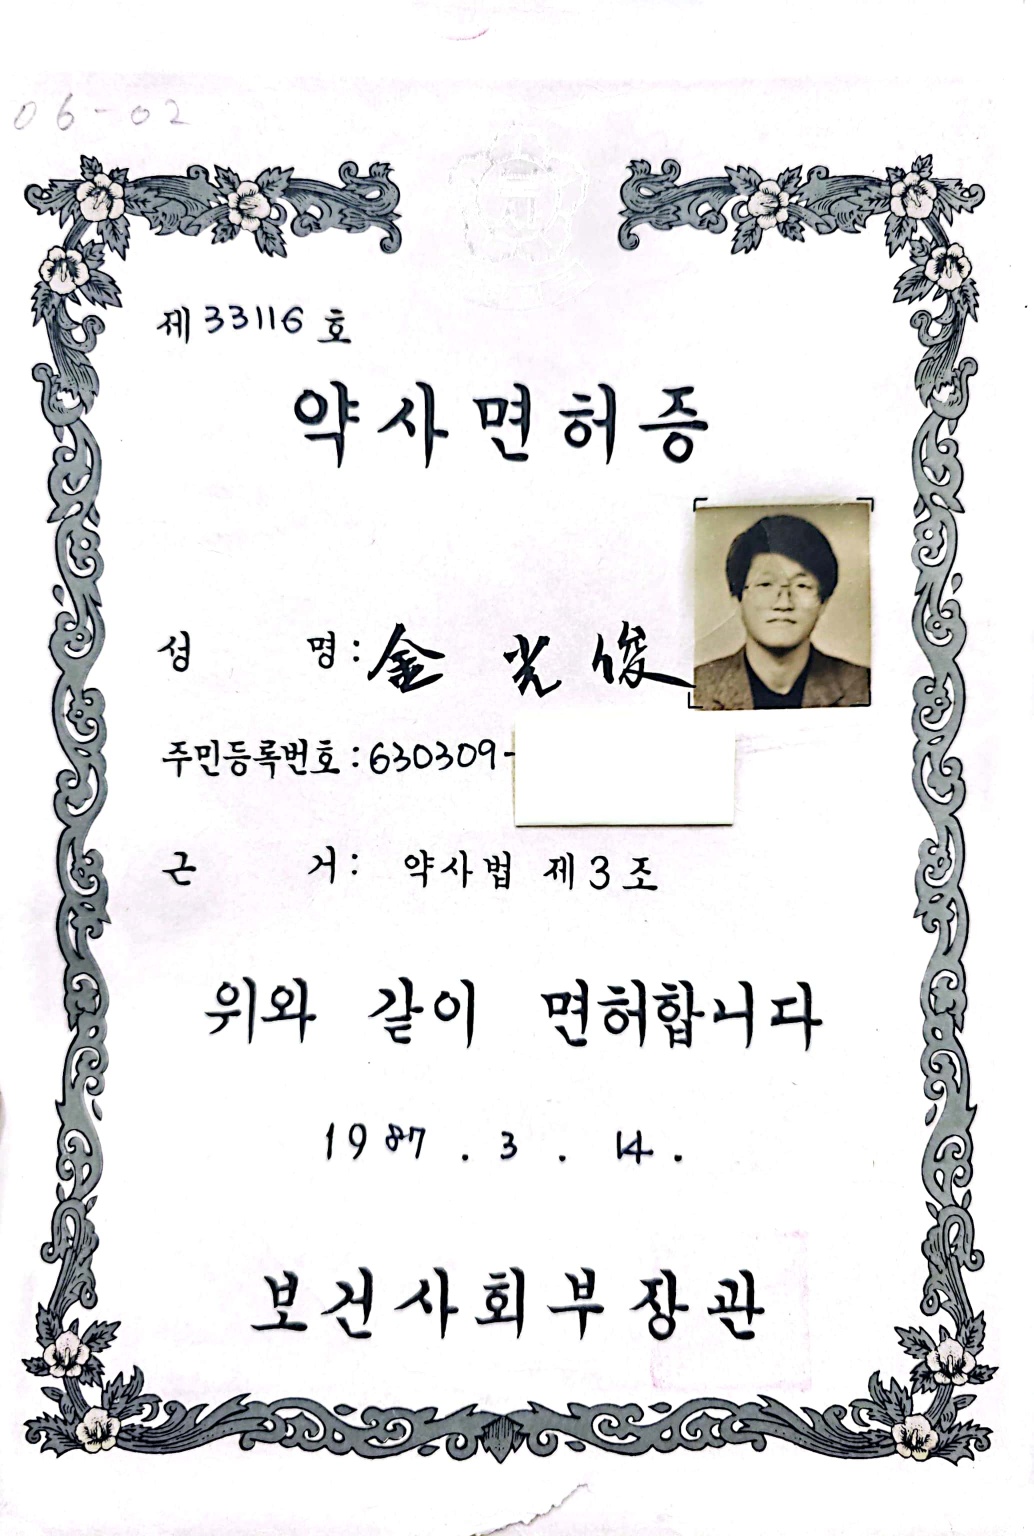 06-02
제 33116 호
약사면허증
성 명 : 金 光 俊
주민등록번호 : 630309-
근 거 : 약사법 제3조
위와 같이 면허합니다
1987 . 3 . 14 .
보건사회부장관